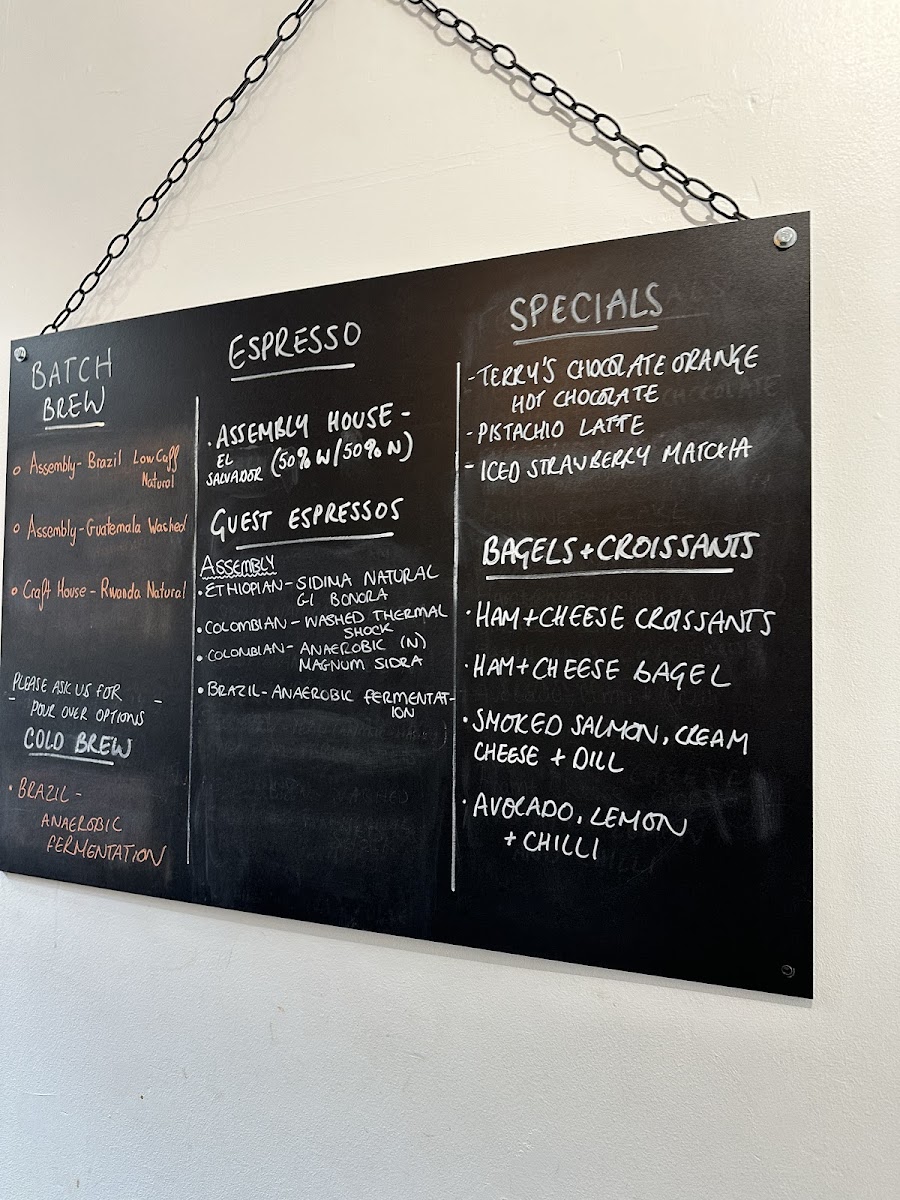 BATCH
BREW
Assembly - Brazil Low Caff
Natural
Assembly - Guatemala Washed
Craft House - Rwanda Natural
PLEASE ASK US FOR
- POUR OVER OPTIONS -
COLD BREW
• BRAZIL -
ANAEROBIC
FERMENTATION
ESPRESSO
• ASSEMBLY HOUSE -
EL
SALVADOR (50% W/50% N)
GUEST ESPRESSOS
ASSEMBLY
• ETHIOPIAN - SIDIMA NATURAL
G1 BONORA
• COLOMBIAN - WASHED THERMAL
SHOCK
• COLOMBIAN - ANAEROBIC (N)
MAGNUM SIDRA
• BRAZIL - ANAEROBIC FERMENTAT-
ION
SPECIALS
- TERRY'S CHOCOLATE ORANGE
HOT CHOCOLATE
- PISTACHIO LATTE
- ICED STRAWBERRY MATCHA
BAGELS + CROISSANTS
• HAM + CHEESE CROISSANTS
• HAM + CHEESE BAGEL
• SMOKED SALMON, CREAM
CHEESE + DILL
• AVOCADO, LEMON
+ CHILLI